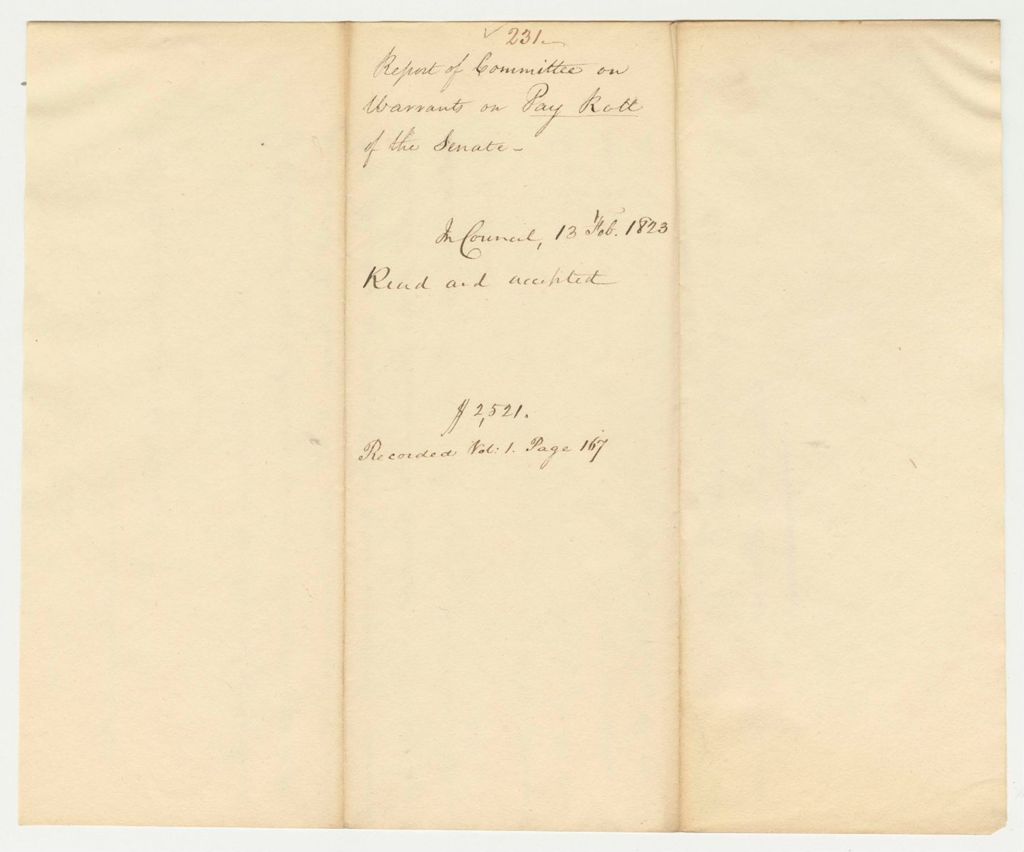 ✓ 231.
Report of Committee on
Warrants on Pay Roll
of the Senate -
In Council, 13 Feb. 1823
Read and accepted
$ 2,521.
Recorded Vol: 1. Page 167